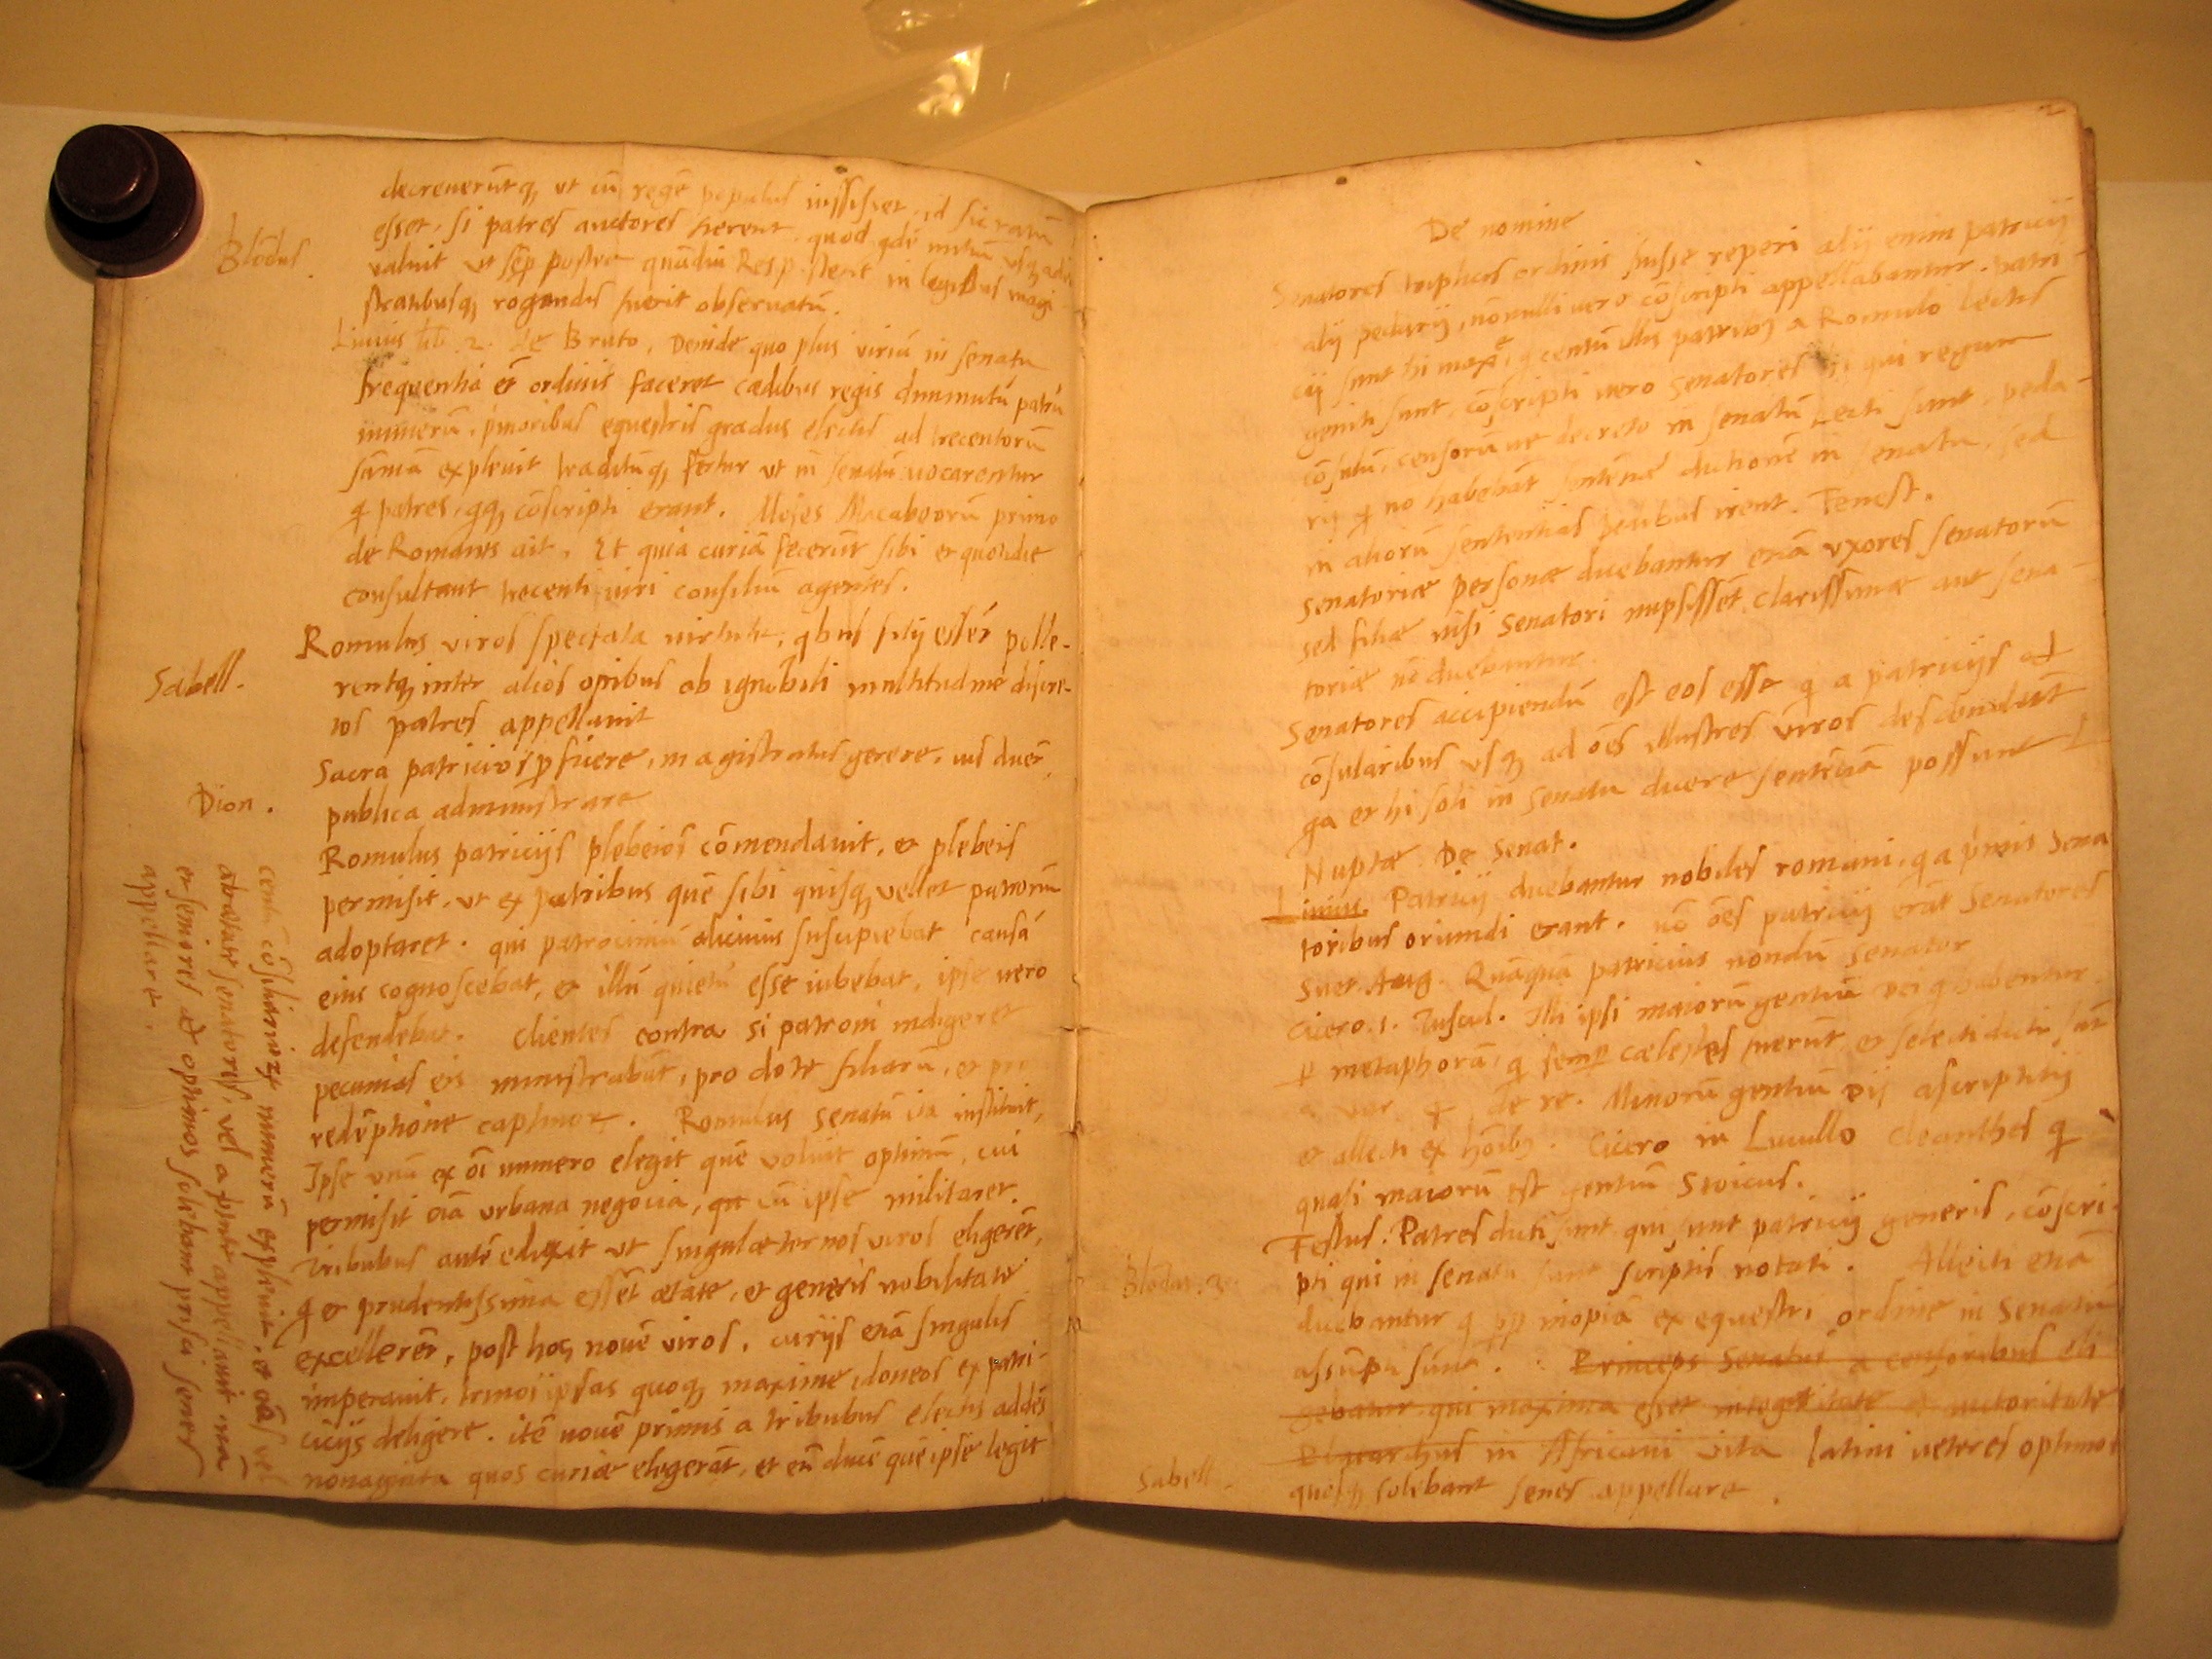 decreuerūtq, ut cū regē populus iussisset, id sic ratū
esset, si patres auctores fierent. quod qdē initiū usq, adeo
Blōdus.
valuit ut sēp postea quādiu Resp. stetit in legibus magi
stratibusq, rogandis fuerit obseruatū.
Liuius lib. 2. de Bruto, Deinde quo plus viriū in senatu
frequentia et ordinis faceret cædibus regis diminutū patrū
numerū, primoribus equestris gradus electis ad trecentorū
sūmā expleuit traditūq, fertur ut in senatū uocarentur
q patres, qq, cōscripti erant. Moses Macabeorū primo
de Romanis ait, Et quia curiā fecerūt sibi et quotidie
consultant trecenti uiri consiliū agentes.
Romulus viros spectata uirtute, qbus filij essēt polle-
Sabell.
rentq, inter alios opibus ab ignobili multitudine discre-
tos patres appellauit
Sacra patricios pficere, magistratus gerere, ius dicer,
Dion.
publica administrare
Romulus patricijs plebeios cōmendauit, et plebeis
permisit, ut ex patribus quē sibi quisq, vellet patronū
adoptaret. qui patrociniū alicuius suscipiebat causā
eius cognoscebat, et illū quietū esse iubebat, ipse uero
defendebat. Clientes contra si patroni indigeret
pecunias eis ministrabāt, pro dote filiarū, et pro
redēptione captiuor. Romulus senatū ita instituit,
Ipse unū ex oī numero elegit quē voluit optimū, cui
permisit oīa urbana negocia, cū ipse militaret.
Tribubus autē edixit ut singulæ ternos viros eligerēt,
q et prudentissima essēt ætate, et generis nobilitate
excellerēt, post hos nouē viros, curijs etiā singulis
imperauit, ternos ipsas quoq, maxime idoneos ex patri-
cijs deligere. itē nouē primis a tribubus electis addēs
nonaginta quos curiæ elegerāt, et eū ducē quē ipse legit
centū cōsiliarior numerū expleuit, et eos vel
ab ætate senatores, vel a uirtute appellauit nā
et seniores et optimos solebant prisci senes
appellare.
2
De nomine
Senatores triplicis ordinis fuisse reperi alij enim patricij
alij pedarij, nōnulli uero cōscripti appellabantur. patri-
cij sunt hi maxē, q centū illis patribq a Romulo lectis
geniti sunt, cōscripti uero senatores ij qui regum
cōsulū, censorū ue decreto in senatū Lecti sunt, peda-
rij q no habebāt sententiæ dictionē in senatu, sed
in aliorū sententias pedibus irent. Fenest.
Senatoriæ personæ dicebantur etiā uxores senatorū
sed filiæ nisi senatori nupsissēt, clarissimæ aut sena-
toriæ nō dicebantur.
Senatores accipiendū est eos esse q a patricijs et
cōsularibus usq, ad oēs illustres viros descendūt
qa et hi soli in senatu dicere sentētiā possunt L
Nuptæ. De Senat.
Liuius. Patricij dicebantur nobiles romani, q a prīmis sena
toribus oriundi erant. nō oēs patricij erāt Senatores
Suet. Aug. Quāquā patricius nondū senator
Cicero. 1. Tuscul. Illi ipsi maiorū gentiū Dei q habentur.
p metaphorā, q semp cælestes fuerūt, et selecti dicti sūt
a Var. de re. Minorū gentiū dij ascriptitij
et allecti ex hōībq. Cicero in Lucullo Cleanthes q
quasi maiorū est gentiū Stoicus.
Festus. Patres dicti sunt qui sunt patricij generis, cōscri-
pti qui in senatu sunt scriptis notati. Allecti etiā
Blōdus. 3.
dicebantur q pp inopiā ex equestri ordine in senatū
assūpti sunt. Princeps Senatus a censoribus eli
gebatur qui maxima esset integritate et autoritate
Plutarchus in Africani vita latini ueteres optimos
Sabell.
quosq, solebant senes appellare.